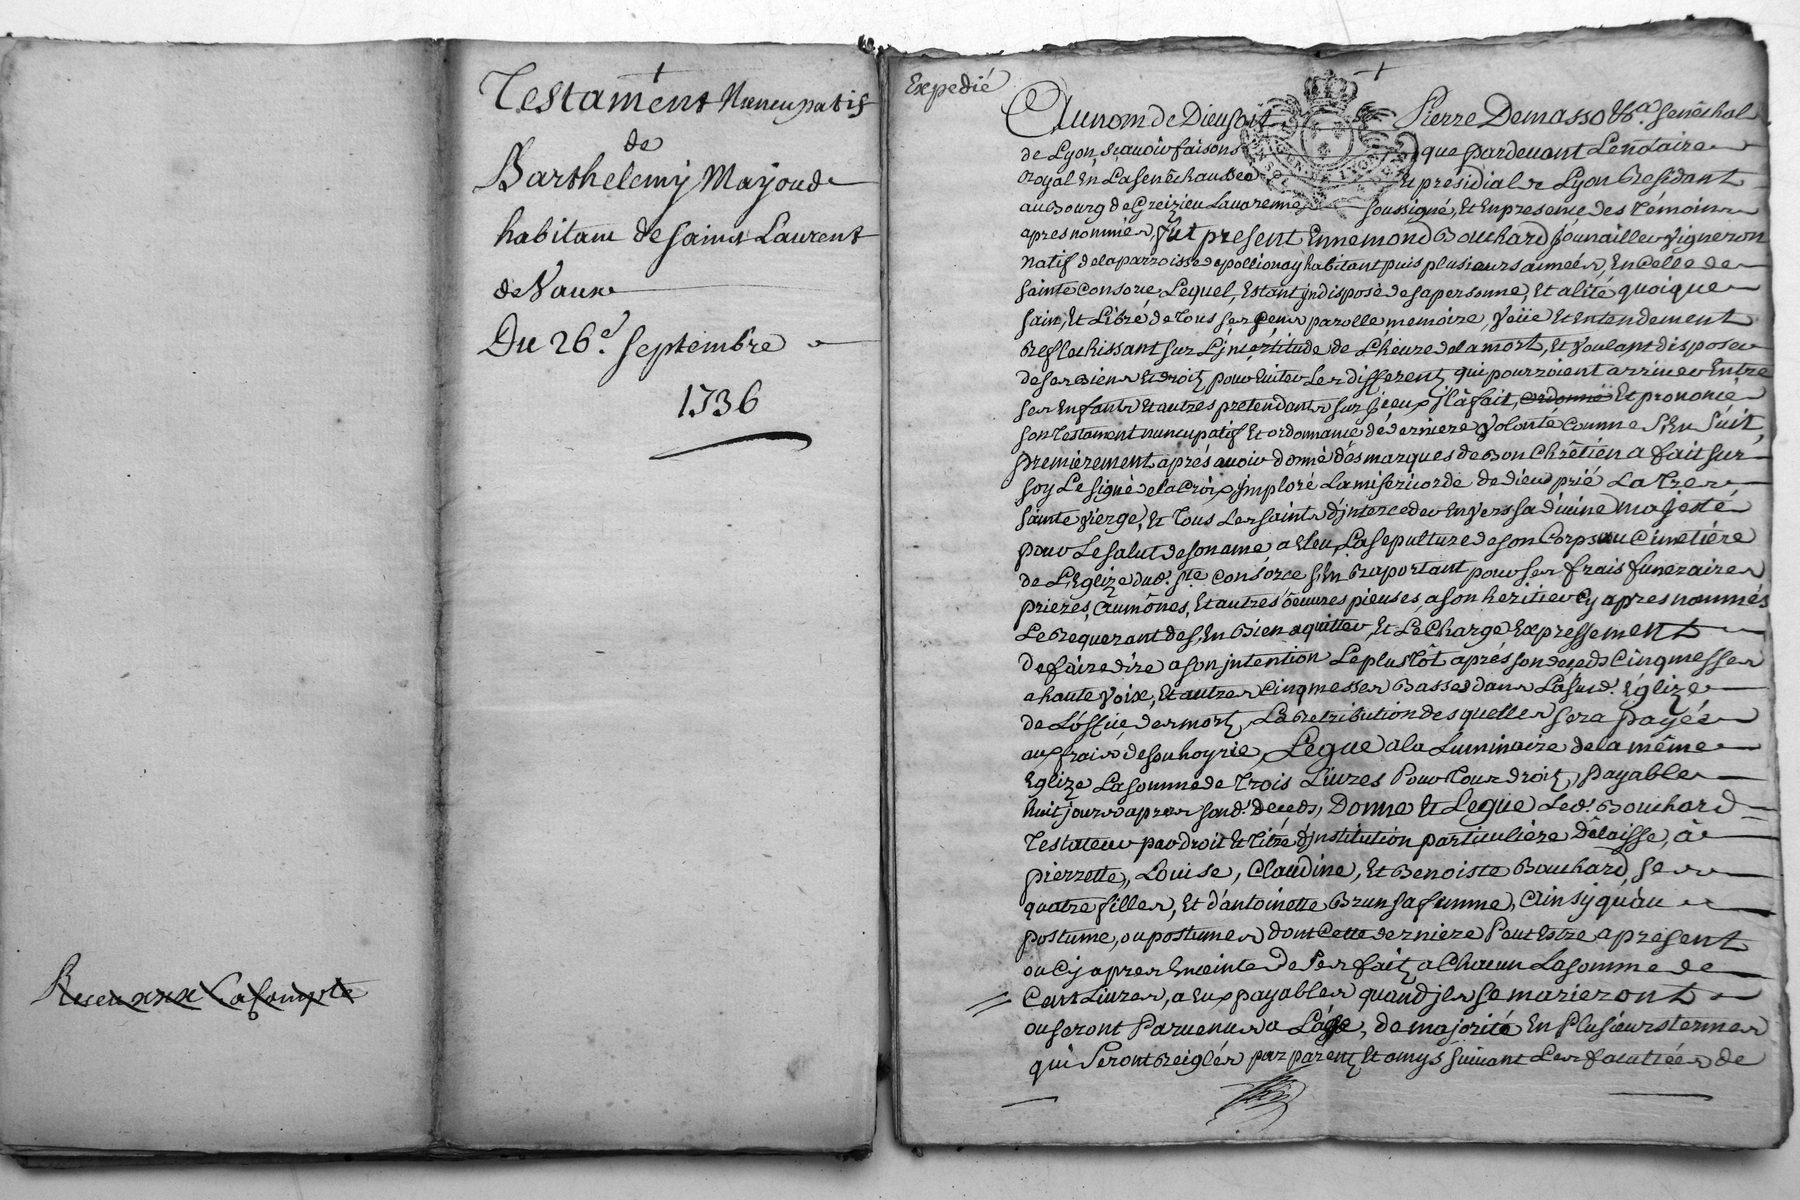 Testament Nuncupatif
de
Barthelemy Mayoud
habitant de Saint Laurent
de Vaux
Du 26e. septembre
1736
Expedié
Au nom de Dieu soit Pierre Demasso &a. senéchal
de Lyon sçavoir faisons que pardevant Le notaire
royal En La senéchaussée Et présidial de Lyon Residant
au Bourg de Greizieu Lavarenne soussigné, Et En presence des Témoins
apres nommés, fut present Ennemond Bouchard journaillier vigneron
natif de la parroisse de pollionay habitant puis plusieurs années, En Celle de
sainte Consorce Lequel, Estant jndisposé de sa personne, Et alité quoique
sain, Et Libre de Tous ses sens parolle memoire, veüe Et Entendement
Reflechissant sur L'jncertitude de L'heure de la mort, Et voulant disposer
de ses Biens Et droitz pour Eviter Les differentz qui pourroient arriver Entre
ses Enfants Et autres pretendants sur jceux jl a fait, ordonné Et prononcé
son Testament nuncupatif Et ordonnance de derniere volonté Comme S'En Suit,
premierement aprés avoir donné des marques de Bon Chrêtien a fait sur
soy Le signe de la Croix, jmploré La misericorde de dieu prié La Tres
sainte vierge, Et Tous Les saints d'jnterceder Envers sa divine majesté
pour Le salut de son ame, a Eleu La sepulture de son Corps au Cimetiére
de L'Eglize dud. ste Consorce s'En Raportant pour ses frais funeraires
prieres, aumônes, Et autres oeuvres pieuses, a son heritier Cy apres nommés
Le Requerant de s'En Bien aquitter, Et Le Charge Expressement
de faire dire a son jntention Le plustôt aprés son decedz Cinq messes
a haute voix, Et autres Cinq messes Basses dans Lasusd. Églize
de L'office des mortz, La Retribution des quelles sera payée
aux frais de son hoyrie, Legue a La Luminaire de la même
Eglize La somme de Trois Livres Pour Tour droitz, payable
huit jours apres sond. decedz, Donne Et Legue Led. Bouchard
Testateur par droit Et Titre d'jnstitution particuliére Délaisse, à
pierrette, Louise, Claudine, Et Benoiste Bouchard, ses
quatre filles, Et d'antoinette Brun sa femme, Ainsy qu'au
postume, ou postumes dont Cette derniere Peut Estre a présent
ou Cy apres Enceinte de Ses faitz, a Chacun La somme de
Cent Livres, a Eux payables quand jls se marieront
ou seront Parvenus a L'age, de majorité En Plusieurs termes
qui Seront Reiglés par parentz, Et amys suivant Les facultées de